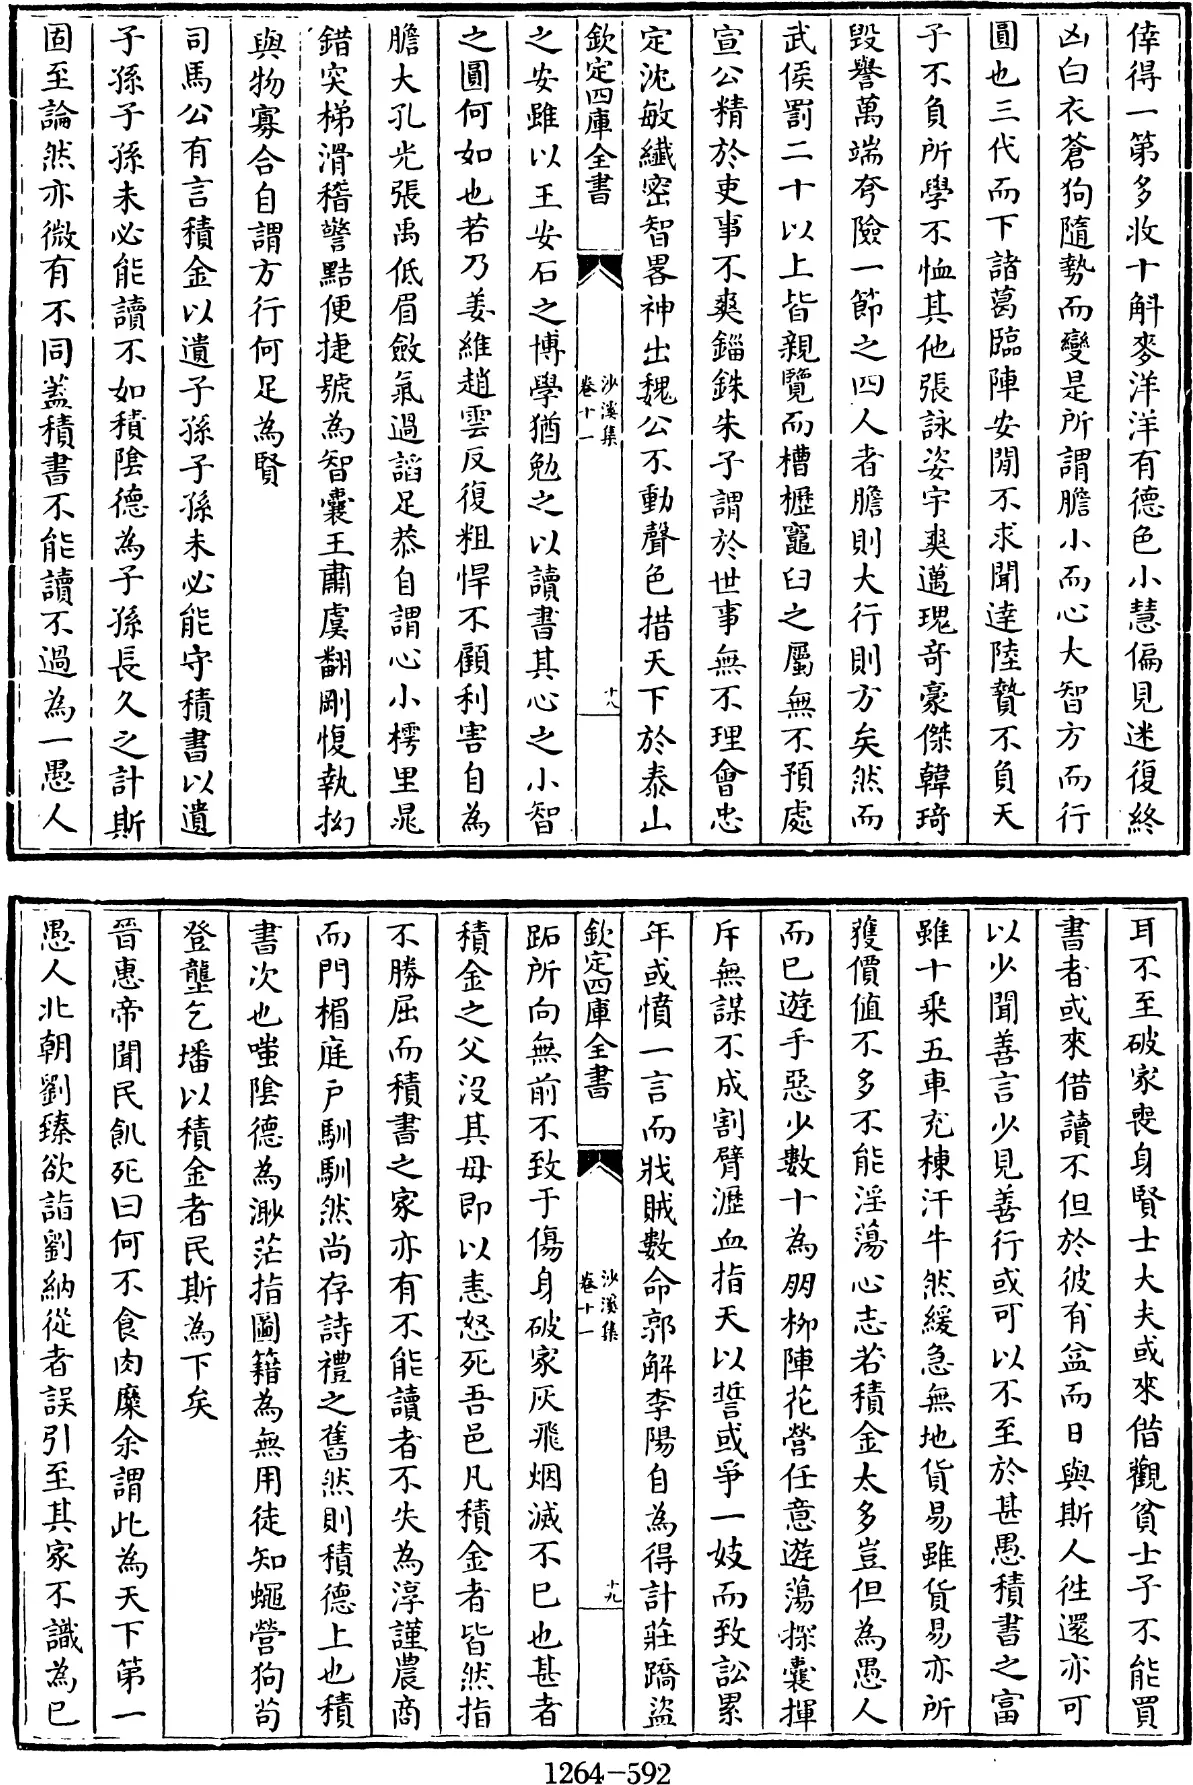 倖得一第多收十斛麥洋洋有德色小慧偏見迷復終
凶白衣蒼狗隨勢而變是所謂膽小而心大智方而行
圓也三代而下諸葛臨陣安閒不求聞逹陸贄不負天
子不負所學不恤其他張詠姿宇爽邁瑰竒豪傑韓琦
毀譽萬端夸險一節之四人者膽則大行則方矣然而
武侯罰二十以上皆親覽而槽櫪竈臼之屬無不預處
宣公精於吏事不爽錙銖朱子謂於世事無不理㑹忠
定沈敏纎密智畧神出魏公不動聲色措天下於泰山
欽定四庫全書
沙溪集
卷十一
十八
之安雖以王安石之博學猶勉之以讀書其心之小智
之圓何如也若乃姜維趙雲反復粗悍不顧利害自為
膽大孔光張禹低眉斂氣過謟足恭自謂心小樗里鼂
錯突梯滑稽警黠便捷號為智囊王肅虞翻剛愎執拗
與物寡合自謂方行何足為賢
司馬公有言積金以遺子孫子孫未必能守積書以遺
子孫子孫未必能讀不如積隂德為子孫長久之計斯
固至論然亦微有不同蓋積書不能讀不過為一愚人
耳不至破家喪身賢士大夫或來借觀貧士子不能買
書者或來借讀不但於彼有益而日與斯人徃還亦可
以少聞善言少見善行或可以不至於甚愚積書之富
雖十乘五車充棟汗牛然緩急無地貨易雖貨易亦所
獲價值不多不能淫蕩心志若積金太多豈但為愚人
而已遊手惡少數十為朋栁陣花營任意遊蕩探囊揮
斥無謀不成割臂瀝血指天以誓或爭一妓而致訟累
年或憤一言而戕賊數命郭解李陽自為得計莊蹻盜
欽定四庫全書
沙溪集
卷十一
十九
跖所向無前不致于傷身破家灰飛烟滅不已也甚者
積金之父沒其母即以恚怒死吾邑凡積金者皆然指
不勝屈而積書之家亦有不能讀者不失為淳謹農商
而門楣庭戸馴馴然尚存詩禮之舊然則積德上也積
書次也嗤隂德為渺茫指圖籍為無用徒知蠅營狗茍
登壟乞墦以積金者民斯為下矣
晉惠帝聞民飢死曰何不食肉糜余謂此為天下第一
愚人北朝劉臻欲詣劉納從者誤引至其家不識為已
1264-592